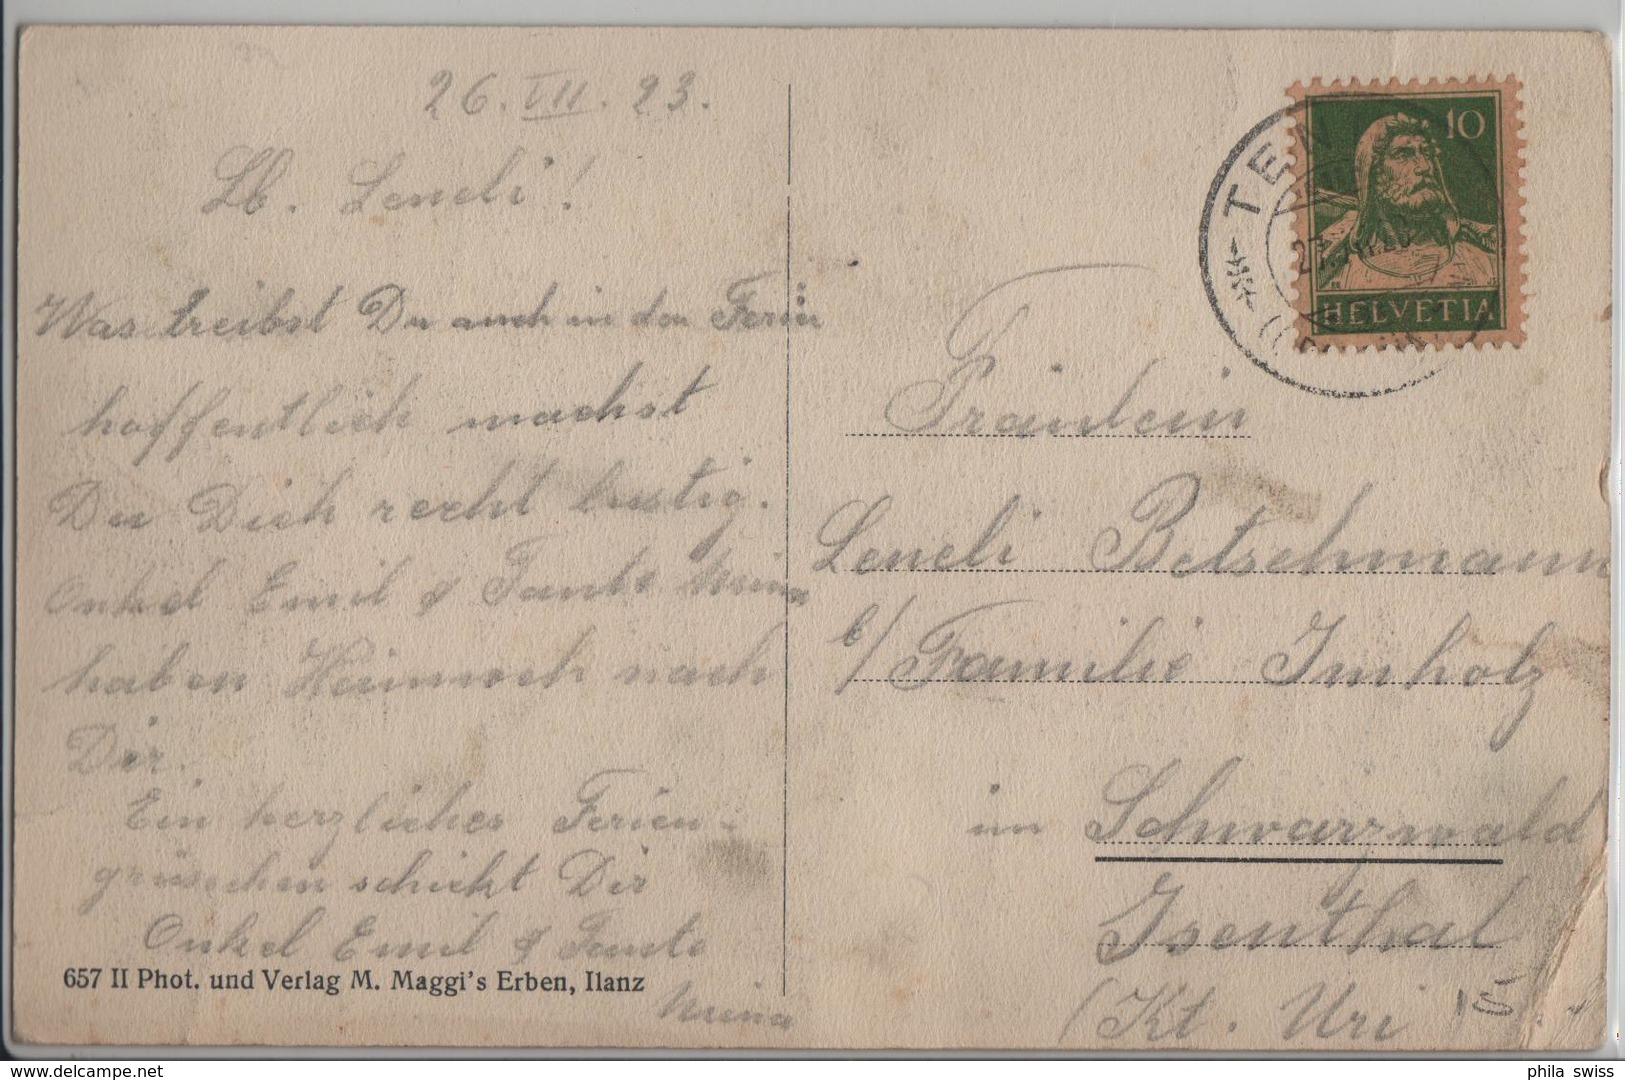 26. VII. 23.
Lb. Leneli!
Was treibst Du auch in den Ferien
hoffentlich machst
Du Dich recht lustig.
Onkel Emil & Tante Mina
haben Heimweh nach
Dir.
Ein herzliches Ferien-
grüsschen schickt Dir
Onkel Emil & Tante
Mina
657 II Phot. und Verlag M. Maggi's Erben, Ilanz
10
HELVETIA
TEN
27. VII. 23
Fräulein
Leneli Betschmann
b/ Familie Imholz
im Schwarzwald
Isenthal
(Kt. Uri
15
phila swiss